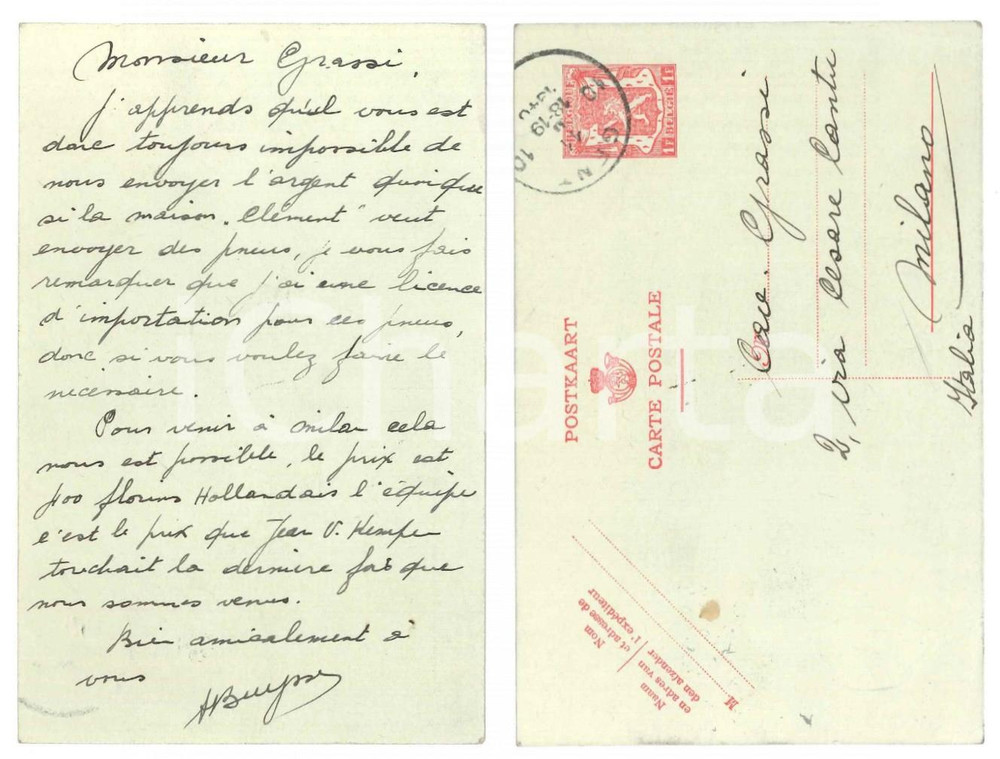 Monsieur Grassi,
j'apprends qu'il vous est
donc toujours impossible de
nous envoyer l'argent quoique
si la maison "Clément" veut
envoyer des pneus, je vous fais
remarquer que j'ai une licence
d'importation pour ces pneus,
donc si vous voulez faire le
nécessaire.
Pour venir à Milan cela
nous est possible, le prix est
400 florins Hollandais l'équipe
c'est le prix que Jean V. Kempen
touchait la dernière fois que
nous sommes venus.
Bien amicalement à
vous
ABuysse
BELGIQUE 1F
1F BELGIE
GENT
POSTKAART
CARTE POSTALE
Cav. Grassi
2, via Cesare Cantu
Milano
Italia
Naam
en adres van
den afzender
Nom
et adresse de
l'expéditeur
M
iCharta